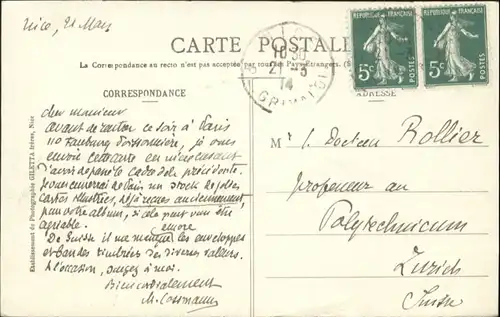 Nice, 21 Mars
CARTE POSTALE
La Correspondance au recto n'est pas acceptée par tous les Pays étrangers. (S
REPUBLIQUE FRANÇAISE
5c POSTES
REPUBLIQUE FRANÇAISE
5c POSTES
10 30
21 - 3
14
GRIMALDI
CORRESPONDANCE
ADRESSE
Etablissement de Photographie GILETTA frères, Nice
cher monsieur
avant de rentrer ce soir à Paris
110 Faubourg Poissonnière, je vous
envoie cette carte en
d'avoir
Je vous enverrai de Paris un stock de jolies
cartes illustrées, déjà reçues anciennement,
pour votre album, si cela peut vous être
agréable.
encore
De Suisse il me manque les enveloppes
et bandes timbrées des diverses valeurs.
A l'occasion, songez à moi.
Bien cordialement
M. Cossmann
Mr l. Docteur Rollier
professeur au
Polytechnicum
Zurich
Suisse